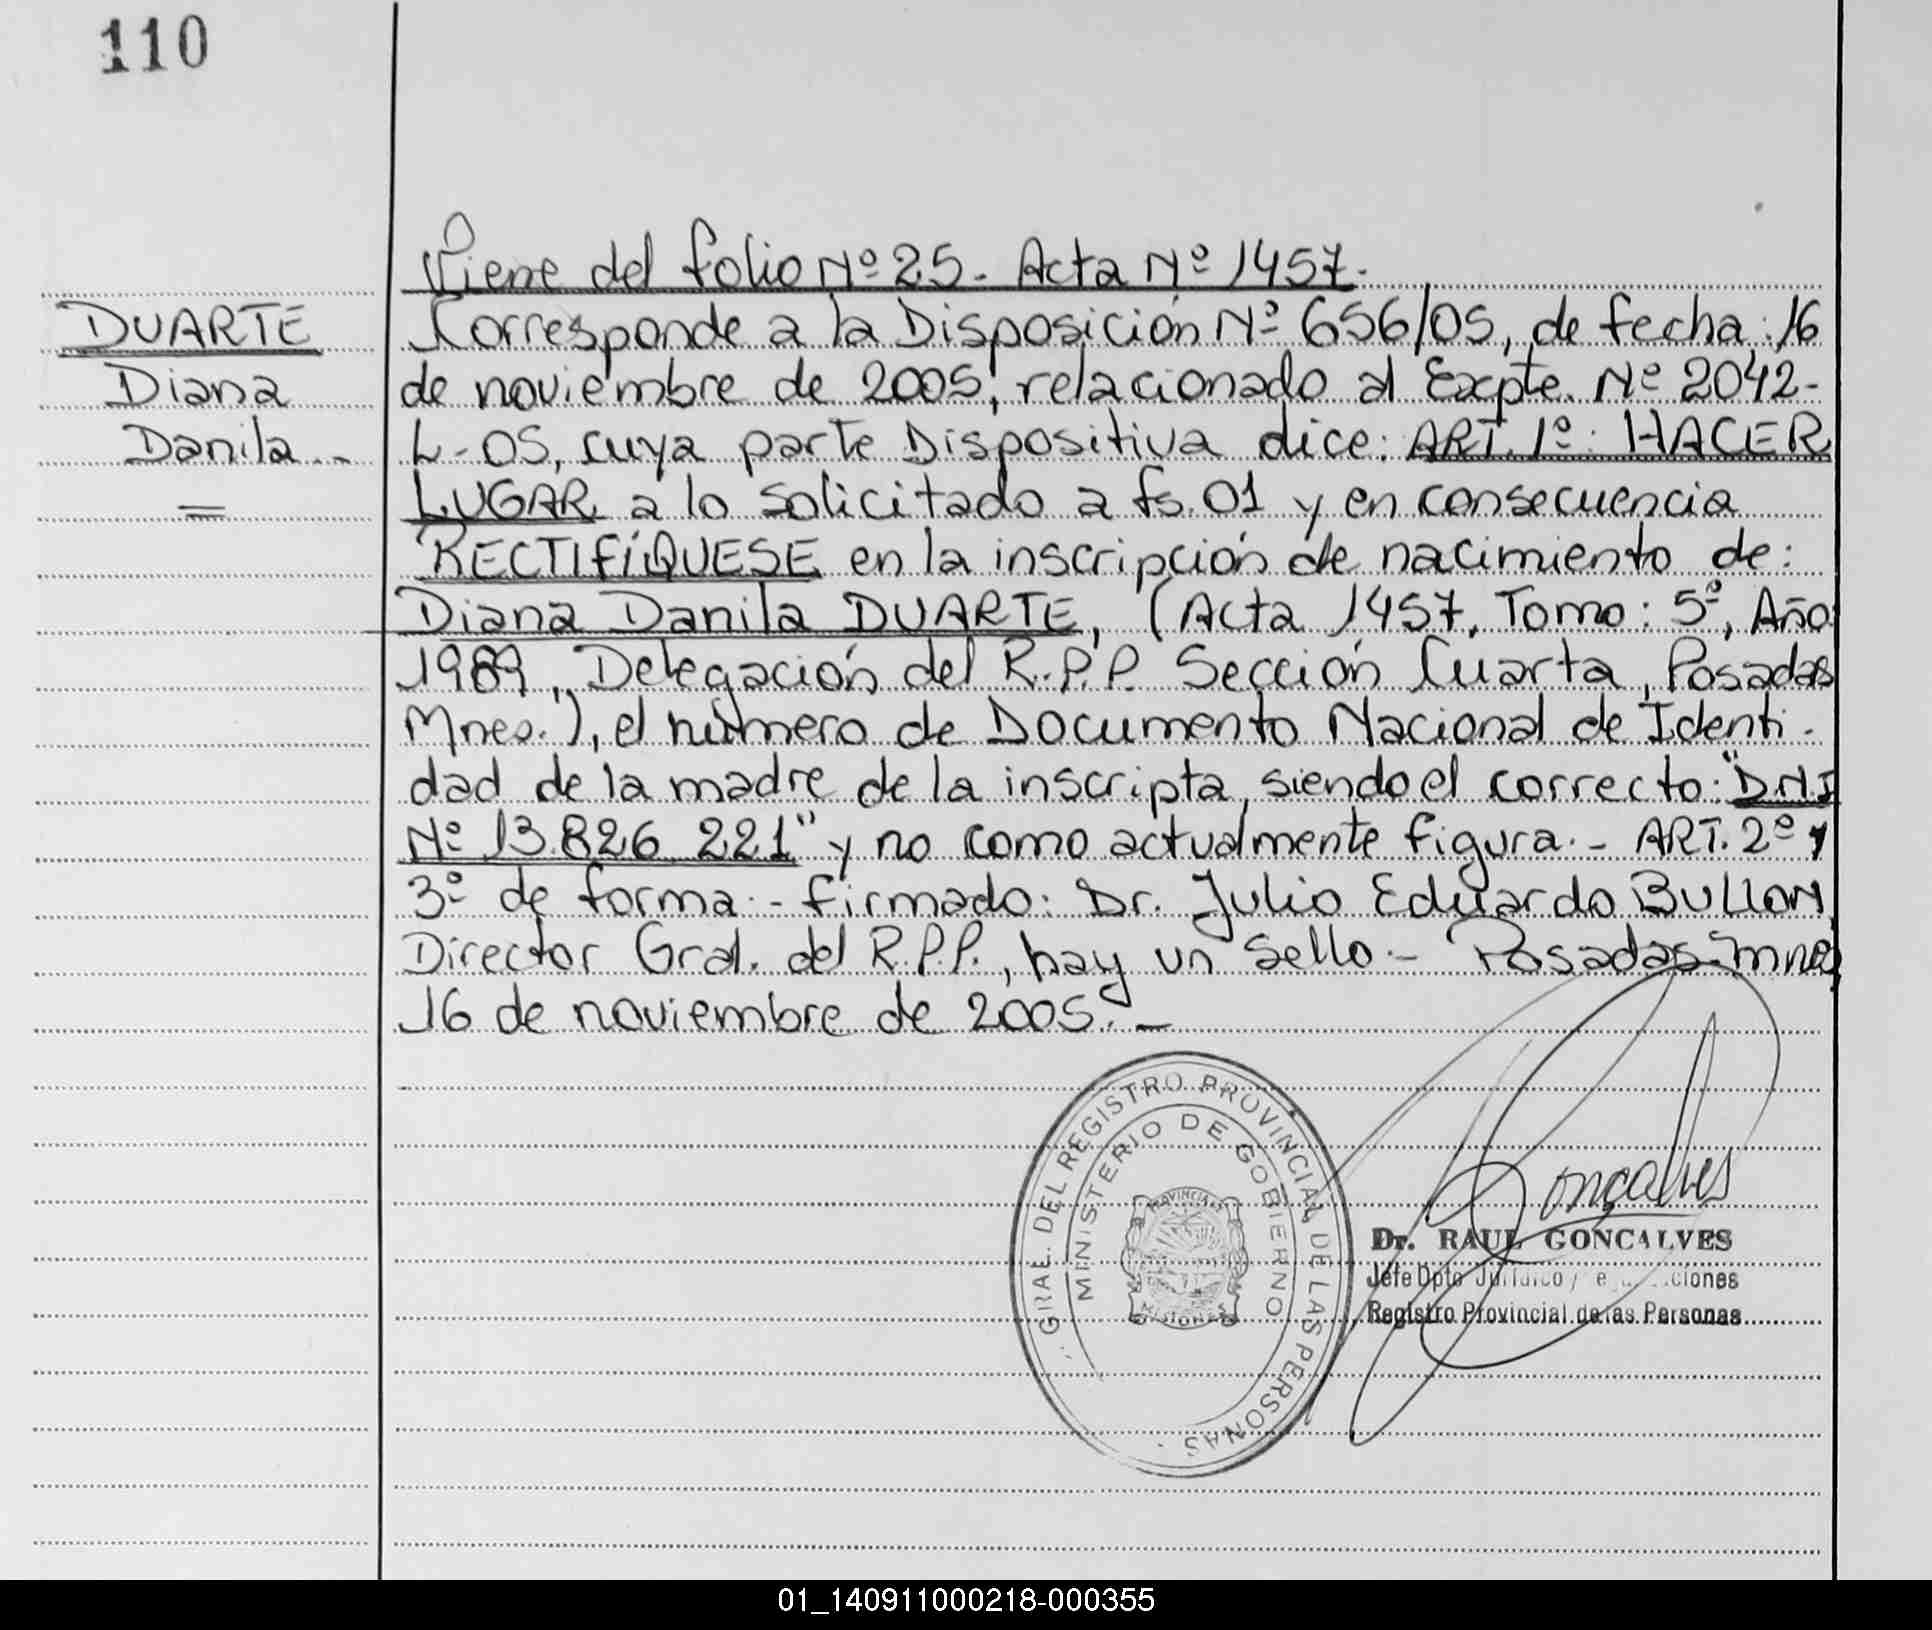 110
Viene del folio Nº 25. Acta Nº 1457.
DUARTE
Diana
Danila.-
=
Corresponde a la Disposición Nº 656/05, de fecha: 16
de noviembre de 2005, relacionado al Expte. Nº 2042-
L-05, cuya parte Dispositiva dice: ART. 1º: HACER
LUGAR a lo solicitado a fs. 01 y en consecuencia
RECTIFÍQUESE en la inscripción de nacimiento de:
Diana Danila DUARTE, (Acta 1457, Tomo: 5º, Año:
1989, Delegación del R.P.P. Sección Cuarta, Posadas
Mnes.), el número de Documento Nacional de Identi-
dad de la madre de la inscripta, siendo el correcto: "D.N.I
Nº 13.826.221" y no como actualmente figura.- ART. 2º y
3º de forma.- firmado: Dr. Julio Eduardo BULLON,
Director Gral. del R.P.P., hay un sello.- Posadas-mnes,
16 de noviembre de 2005.-
GRAL. DEL REGISTRO PROVINCIAL DE LAS PERSONAS
MINISTERIO DE GOBIERNO
PROVINCIA
MISIONES
Gonçalves
Dr. RAUL GONCALVES
Jefe Dpto Jurídico
Registro Provincial de las Personas
01_140911000218-000355